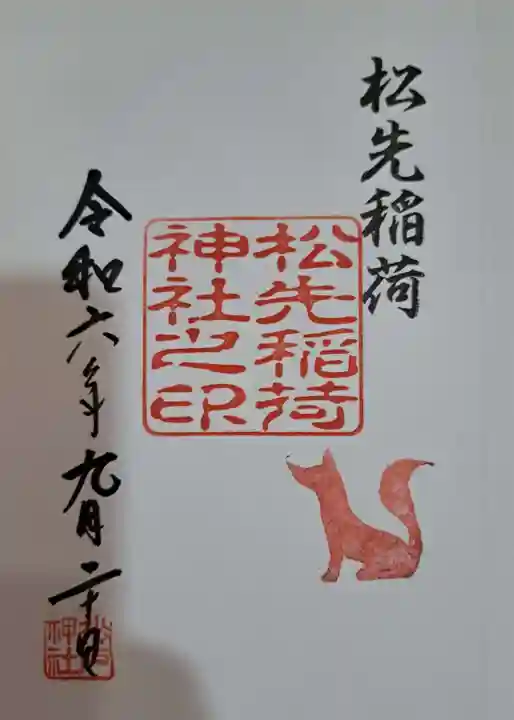 松先稲荷
松先稲荷
神社之印
令和六年九月二十日
神社